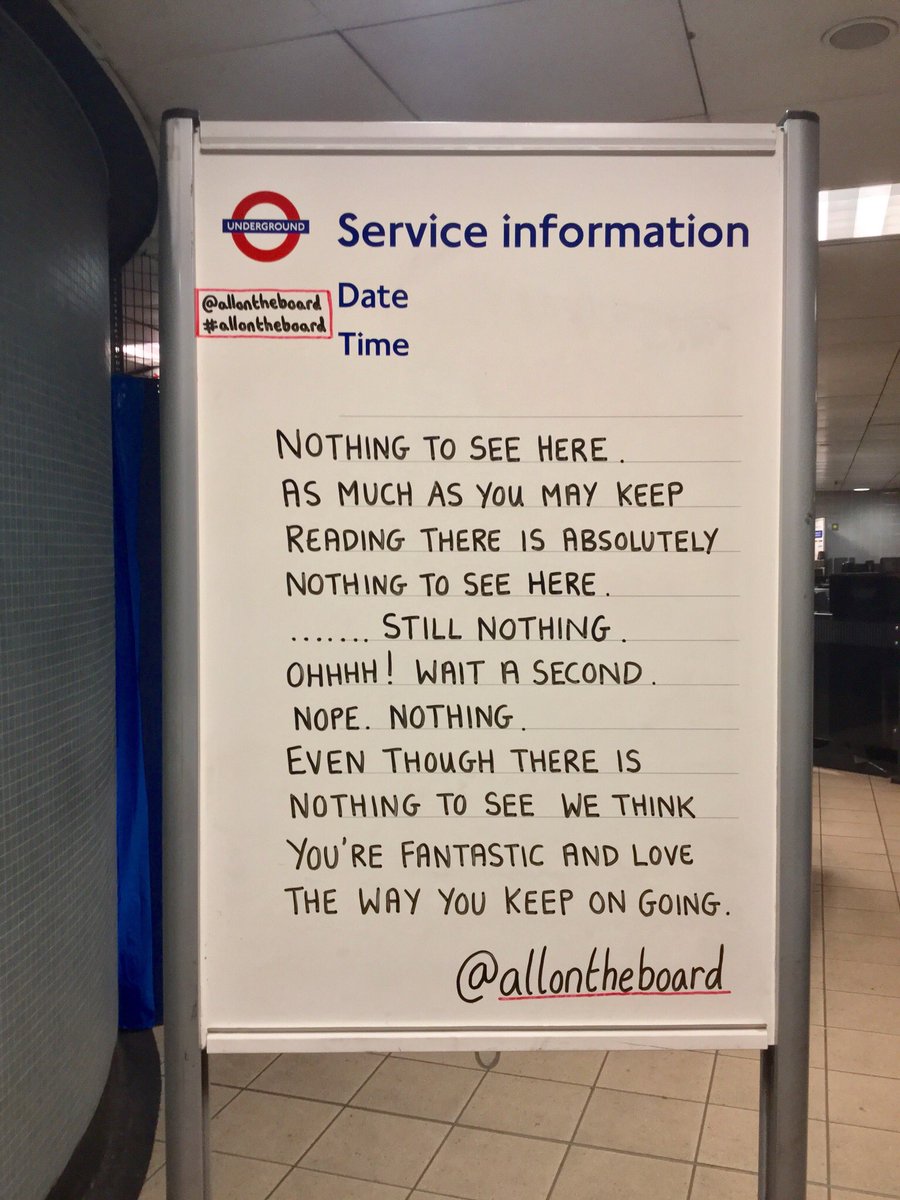 UNDERGROUND
Service information
@allontheboard
#allontheboard
Date
Time
NOTHING TO SEE HERE.
AS MUCH AS YOU MAY KEEP
READING THERE IS ABSOLUTELY
NOTHING TO SEE HERE.
....... STILL NOTHING.
OHHHH! WAIT A SECOND.
NOPE. NOTHING.
EVEN THOUGH THERE IS
NOTHING TO SEE WE THINK
YOU'RE FANTASTIC AND LOVE
THE WAY YOU KEEP ON GOING.
@allontheboard